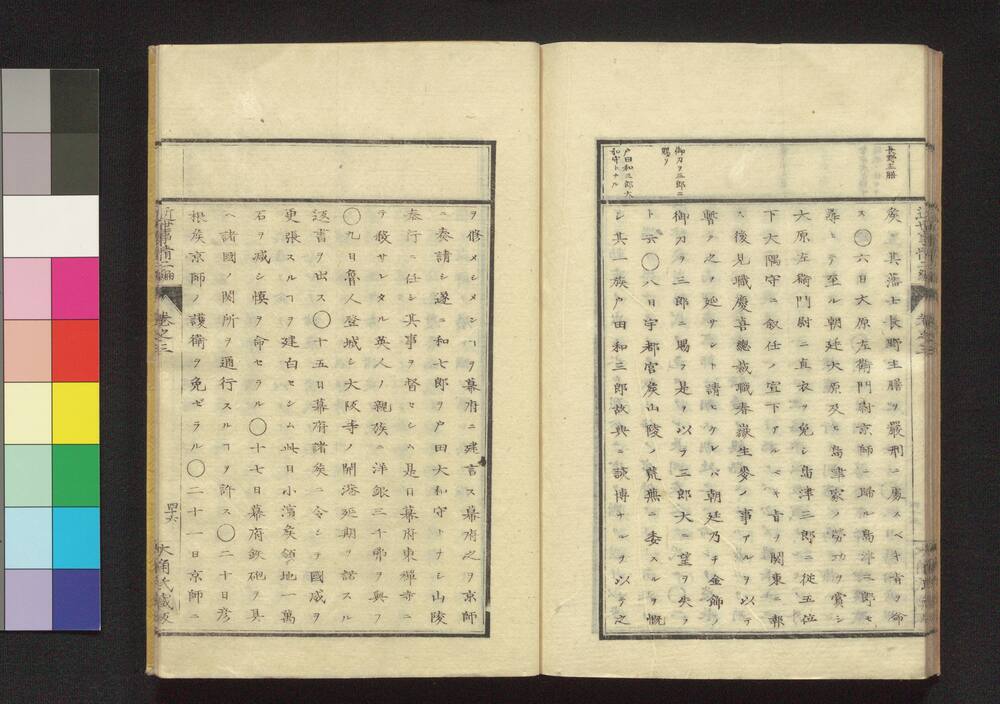 長野主膳
御刀ヲ三郎ニ
賜フ
戸田和三郎大
和守トナル
矦其藩士長野主膳ヲ嚴刑ニ處スベキ旨ヲ命
ス〇六日大原左衞門尉京師ニ歸ル島津三郎モ
尋ヒテ至ル朝廷大原及ヒ島津家ノ勞功ヲ賞シ
大原左衞門尉ニ直衣ヲ免シ島津三郎ニ從五位
下大隅守ニ叙任ノ宣下アルベキ旨ヲ關東ニ報
ス後見職慶喜總裁職春嶽生麥ノ事アルヲ以テ
暫ク之ヲ延サント請ヒケレバ朝廷乃チ金飾ノ
御刀ヲ三郎ニ賜フ是ヲ以テ三郎大ニ望ヲ失フ
ト云〇八日宇都宮矦山陵ノ荒蕪ニ委スルヲ慨
シ其一族戸田和三郎故典ニ該博ナルヲ以テ之
ヲ修メシメンヿヲ幕府ニ建言ス幕府之ヲ京師
ニ奏請シ遂ニ和七郎ヲ戸田大和守トナシ山陵
奉行ニ任シ其事ヲ督セシム是日幕府東禪寺ニ
テ殺サレタル英人ノ親族ニ洋銀三千弗ヲ與フ
〇九日魯人登城シ大阪等ノ開港延期ヲ諾スル
返書ヲ出ス〇十五日幕府諸矦ニ令シテ國威ヲ
更張スルヿヲ建白セシム此日小濱矦領地一萬
石ヲ减シ愼ヲ命セラル〇十七日幕府鉄砲ヲ具
ヘ諸國ノ関所ヲ通行スルヿヲ許ス〇二十日彦
根矦京師ノ護衞ヲ免ゼラル〇二十一日京師ニ
近世事情二編
卷之三
四十六
大角氏藏版